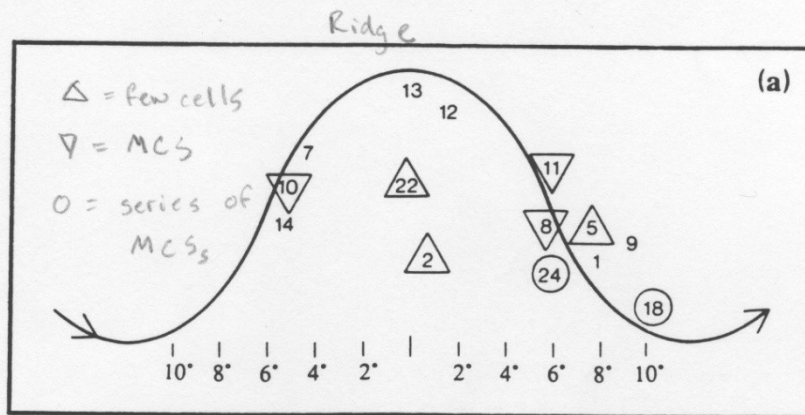 Ridge
(a)
△ = few cells
▽ = MCS
O = series of
MCSs
13
12
7
11
10
22
14
8
5
9
2
1
24
18
10° 8° 6° 4° 2° | 2° 4° 6° 8° 10°